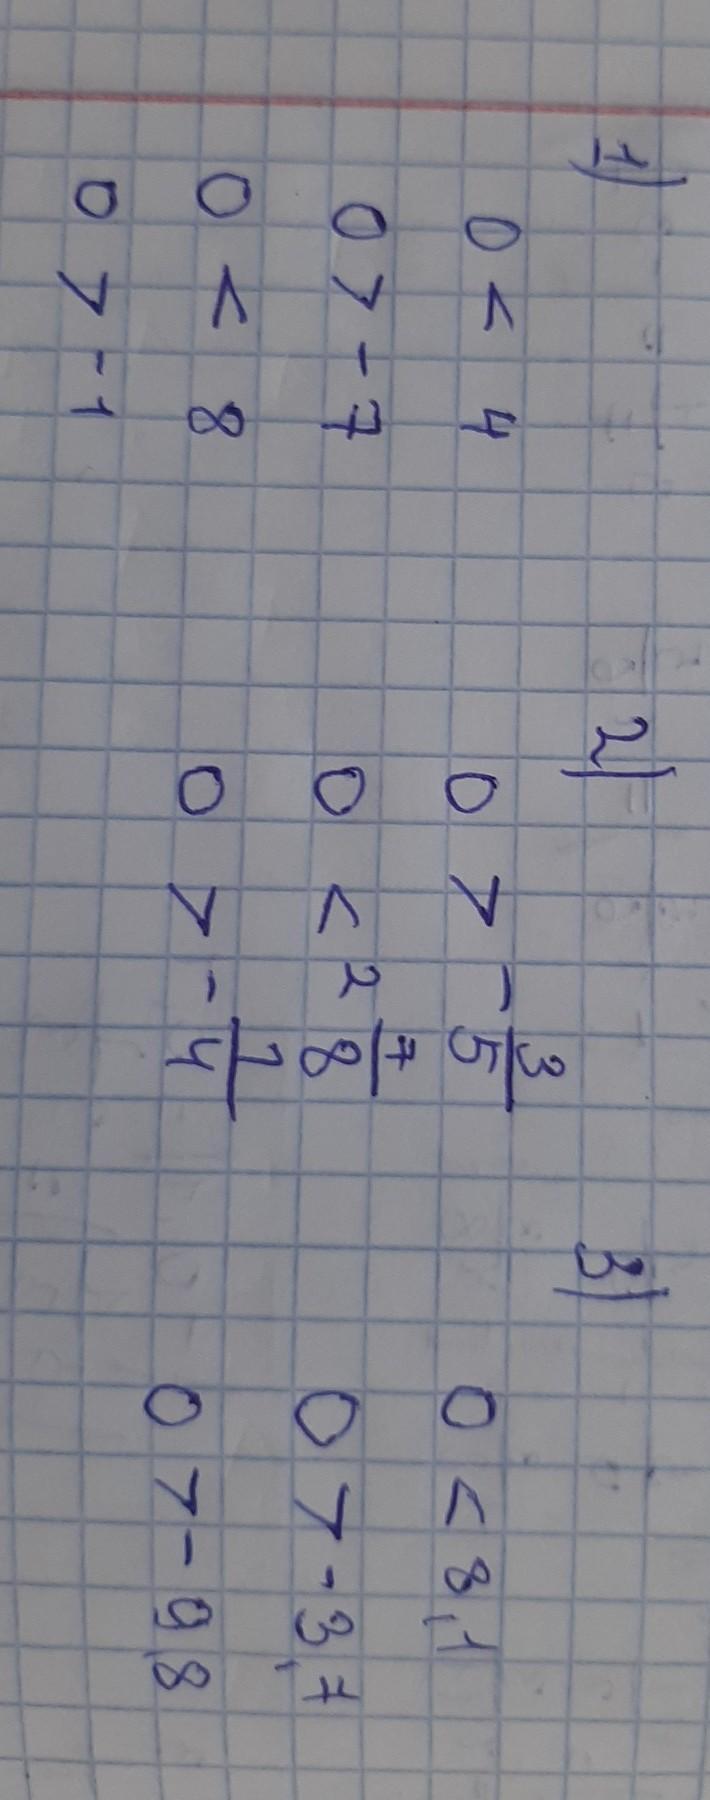 1) 2) 3)
0 < 4 0 > -3/5 0 < 8,1
0 > -7 0 < 2 7/8 0 > -3,7
0 < 8 0 > -1/4 0 > -9,8
0 > -1